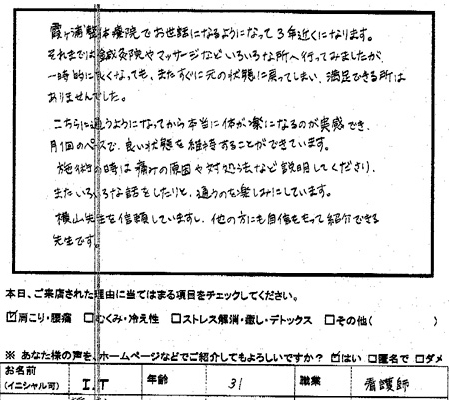 霞ヶ浦整体療院でお世話になるようになって3年近くになります。
それまでは鍼灸院やマッサージなどいろいろな所へ行ってみましたが、
一時的に良くなっても、またすぐに元の状態に戻ってしまい、満足できる所は
ありませんでした。
こちらに通うようになってから本当に体が楽になるのが実感でき、
月1回のペースで、良い状態を維持することができています。
施術の時は痛みの原因や対処法など説明してくださり、
またいろいろな話をしたりと、通うのを楽しみにしています。
横山先生を信頼していますし、他の方にも自信をもって紹介できる
先生です。
本日、ご来店された理由に当てはまる項目をチェックしてください。
☑肩こり・腰痛 □むくみ・冷え性 □ストレス解消・癒し・デトックス □その他( )
※ あなた様の声を、ホームページなどでご紹介してもよろしいですか？ ☑はい □匿名で □ダメ
お名前 (イニシャル可) I.T 年齢 31 職業 看護師